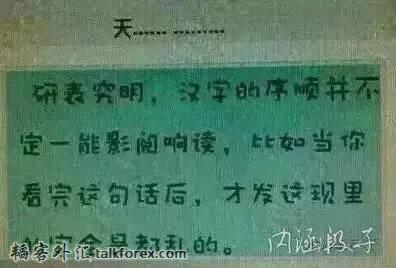 天...... .........
研表究明，汉字的序顺并不
定一能影阅响读，比如当你
看完这句话后，才发这现里
的字全是都乱的。
内涵段子
韬客外汇talkforex.com